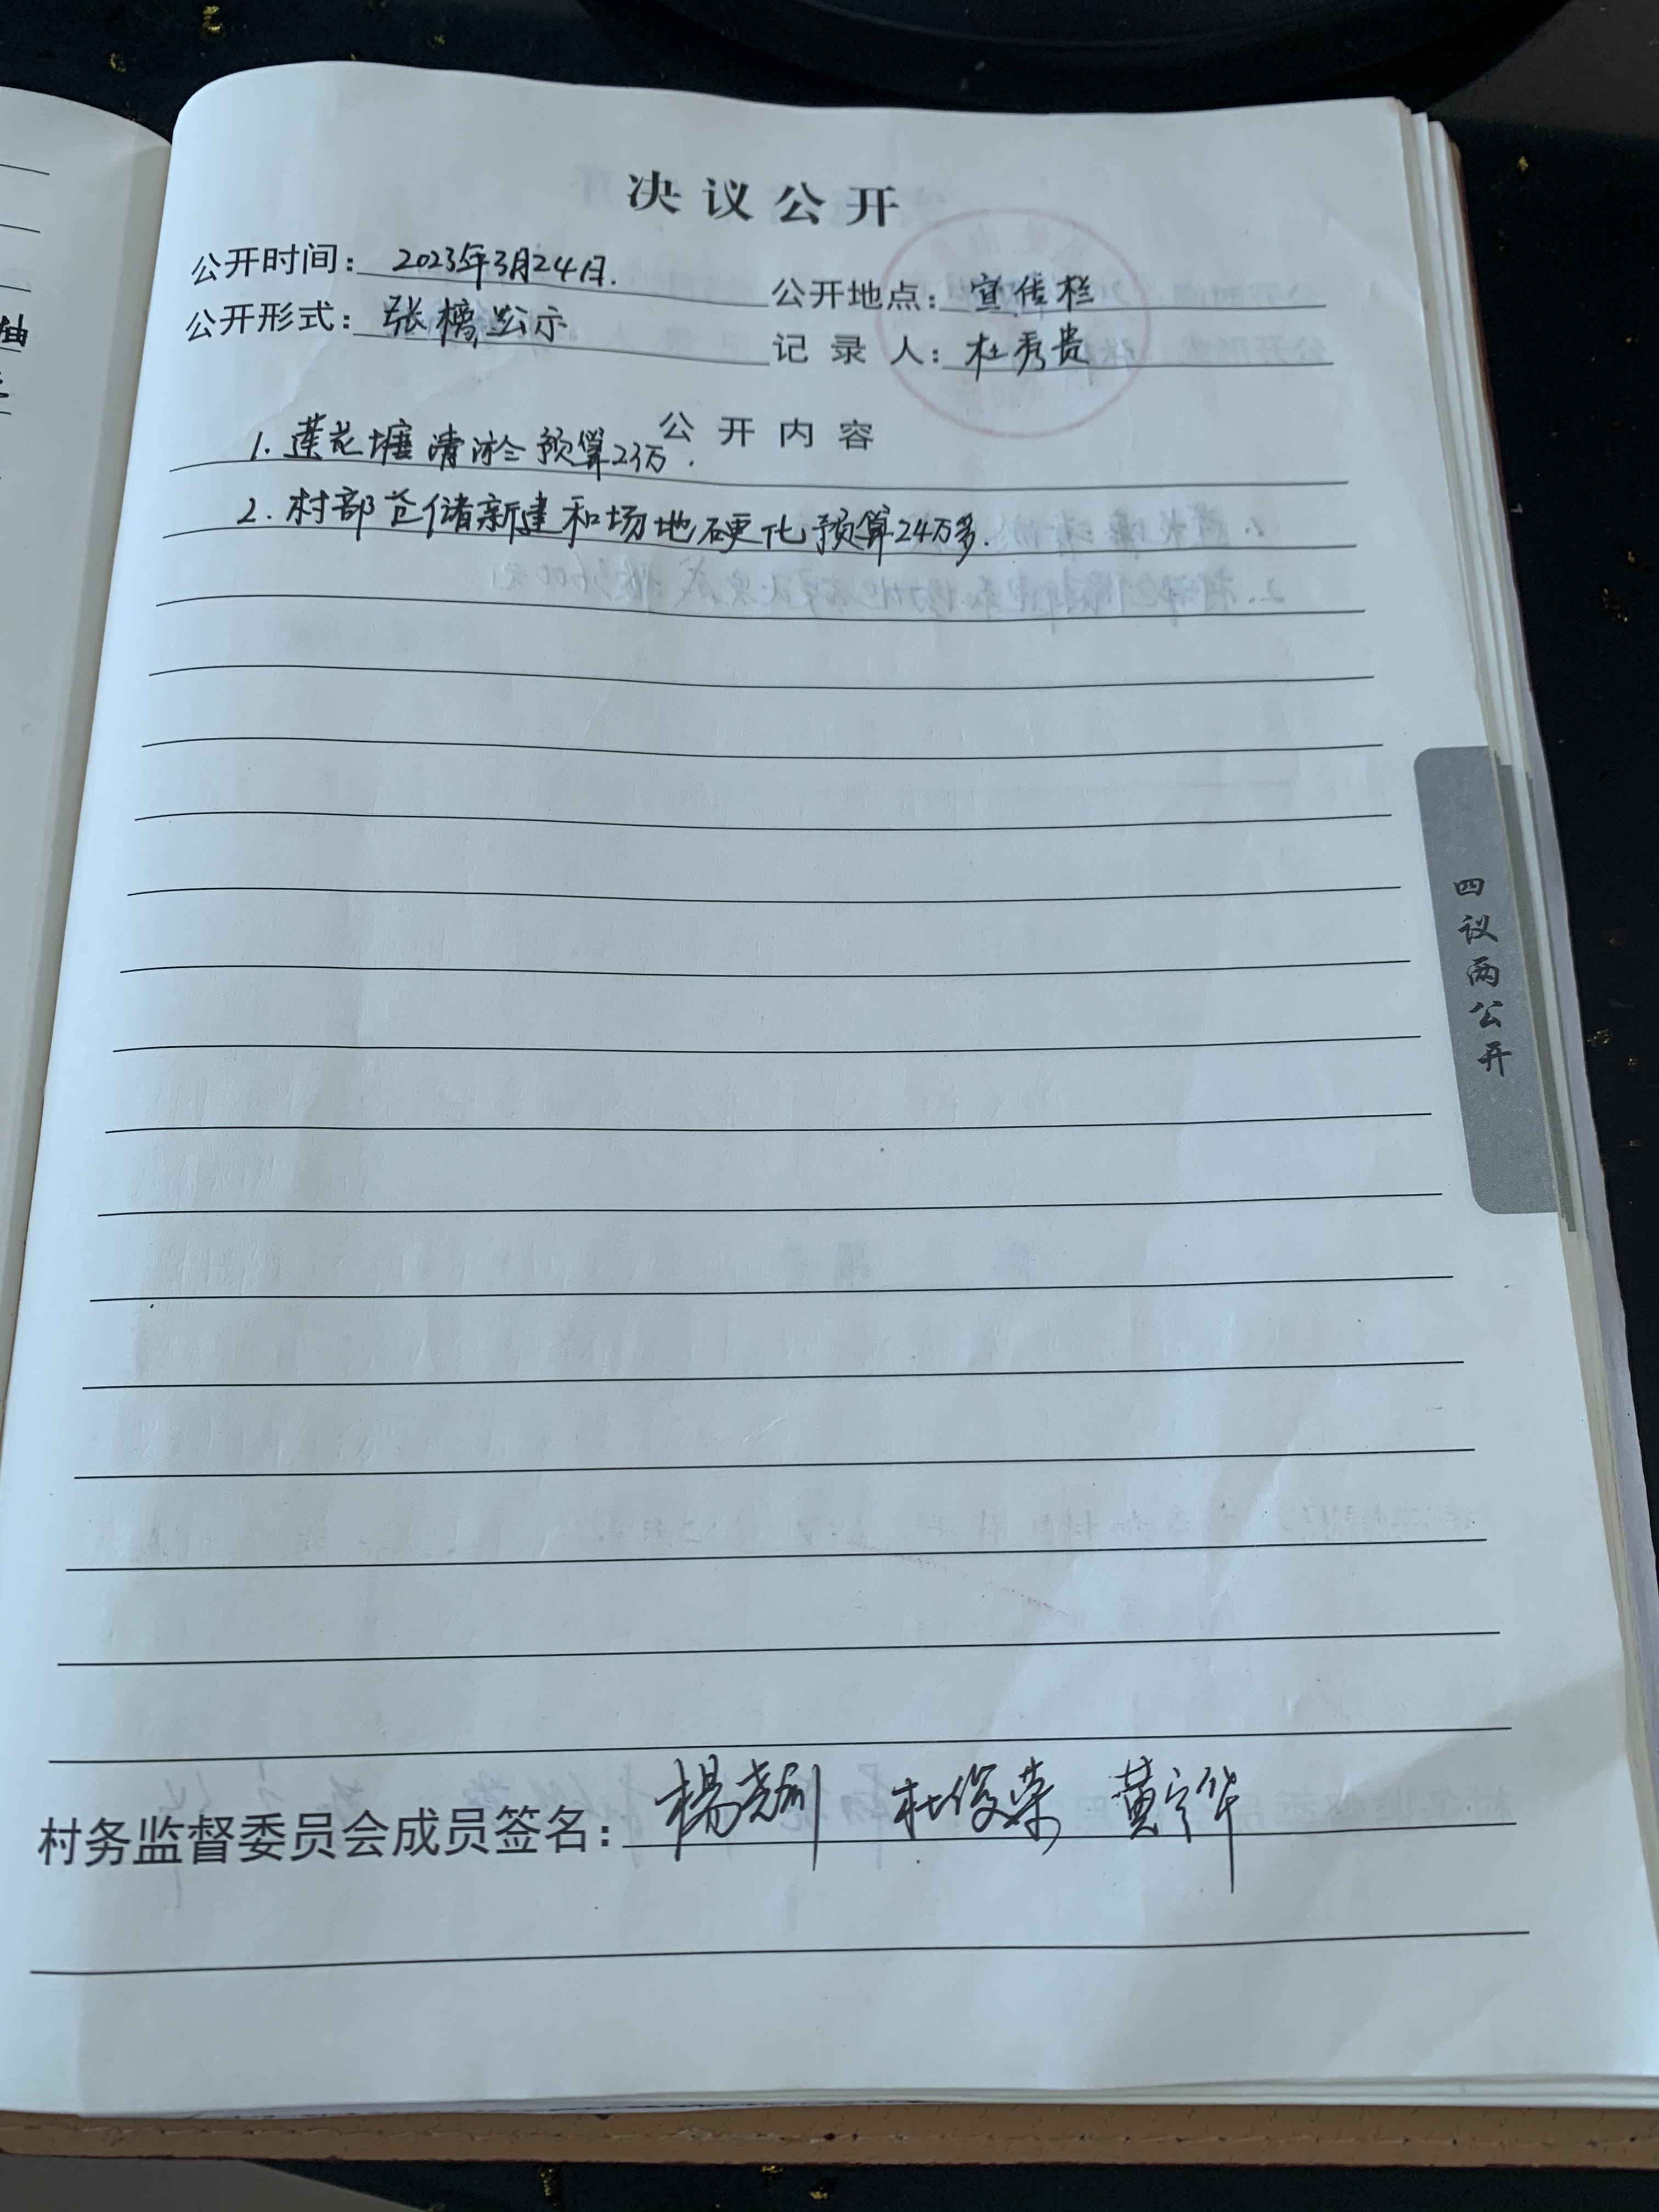 决议公开
公开时间：2023年3月24日.
公开地点：宣传栏
公开形式：张榜公示
记录人：杜秀贵
公开内容
1. 莲花塘清淤预算23万.
2. 村部仓储新建和场地硬化预算24万多.
四议两公开
村务监督委员会成员签名： 杜俊荣 黄宁华